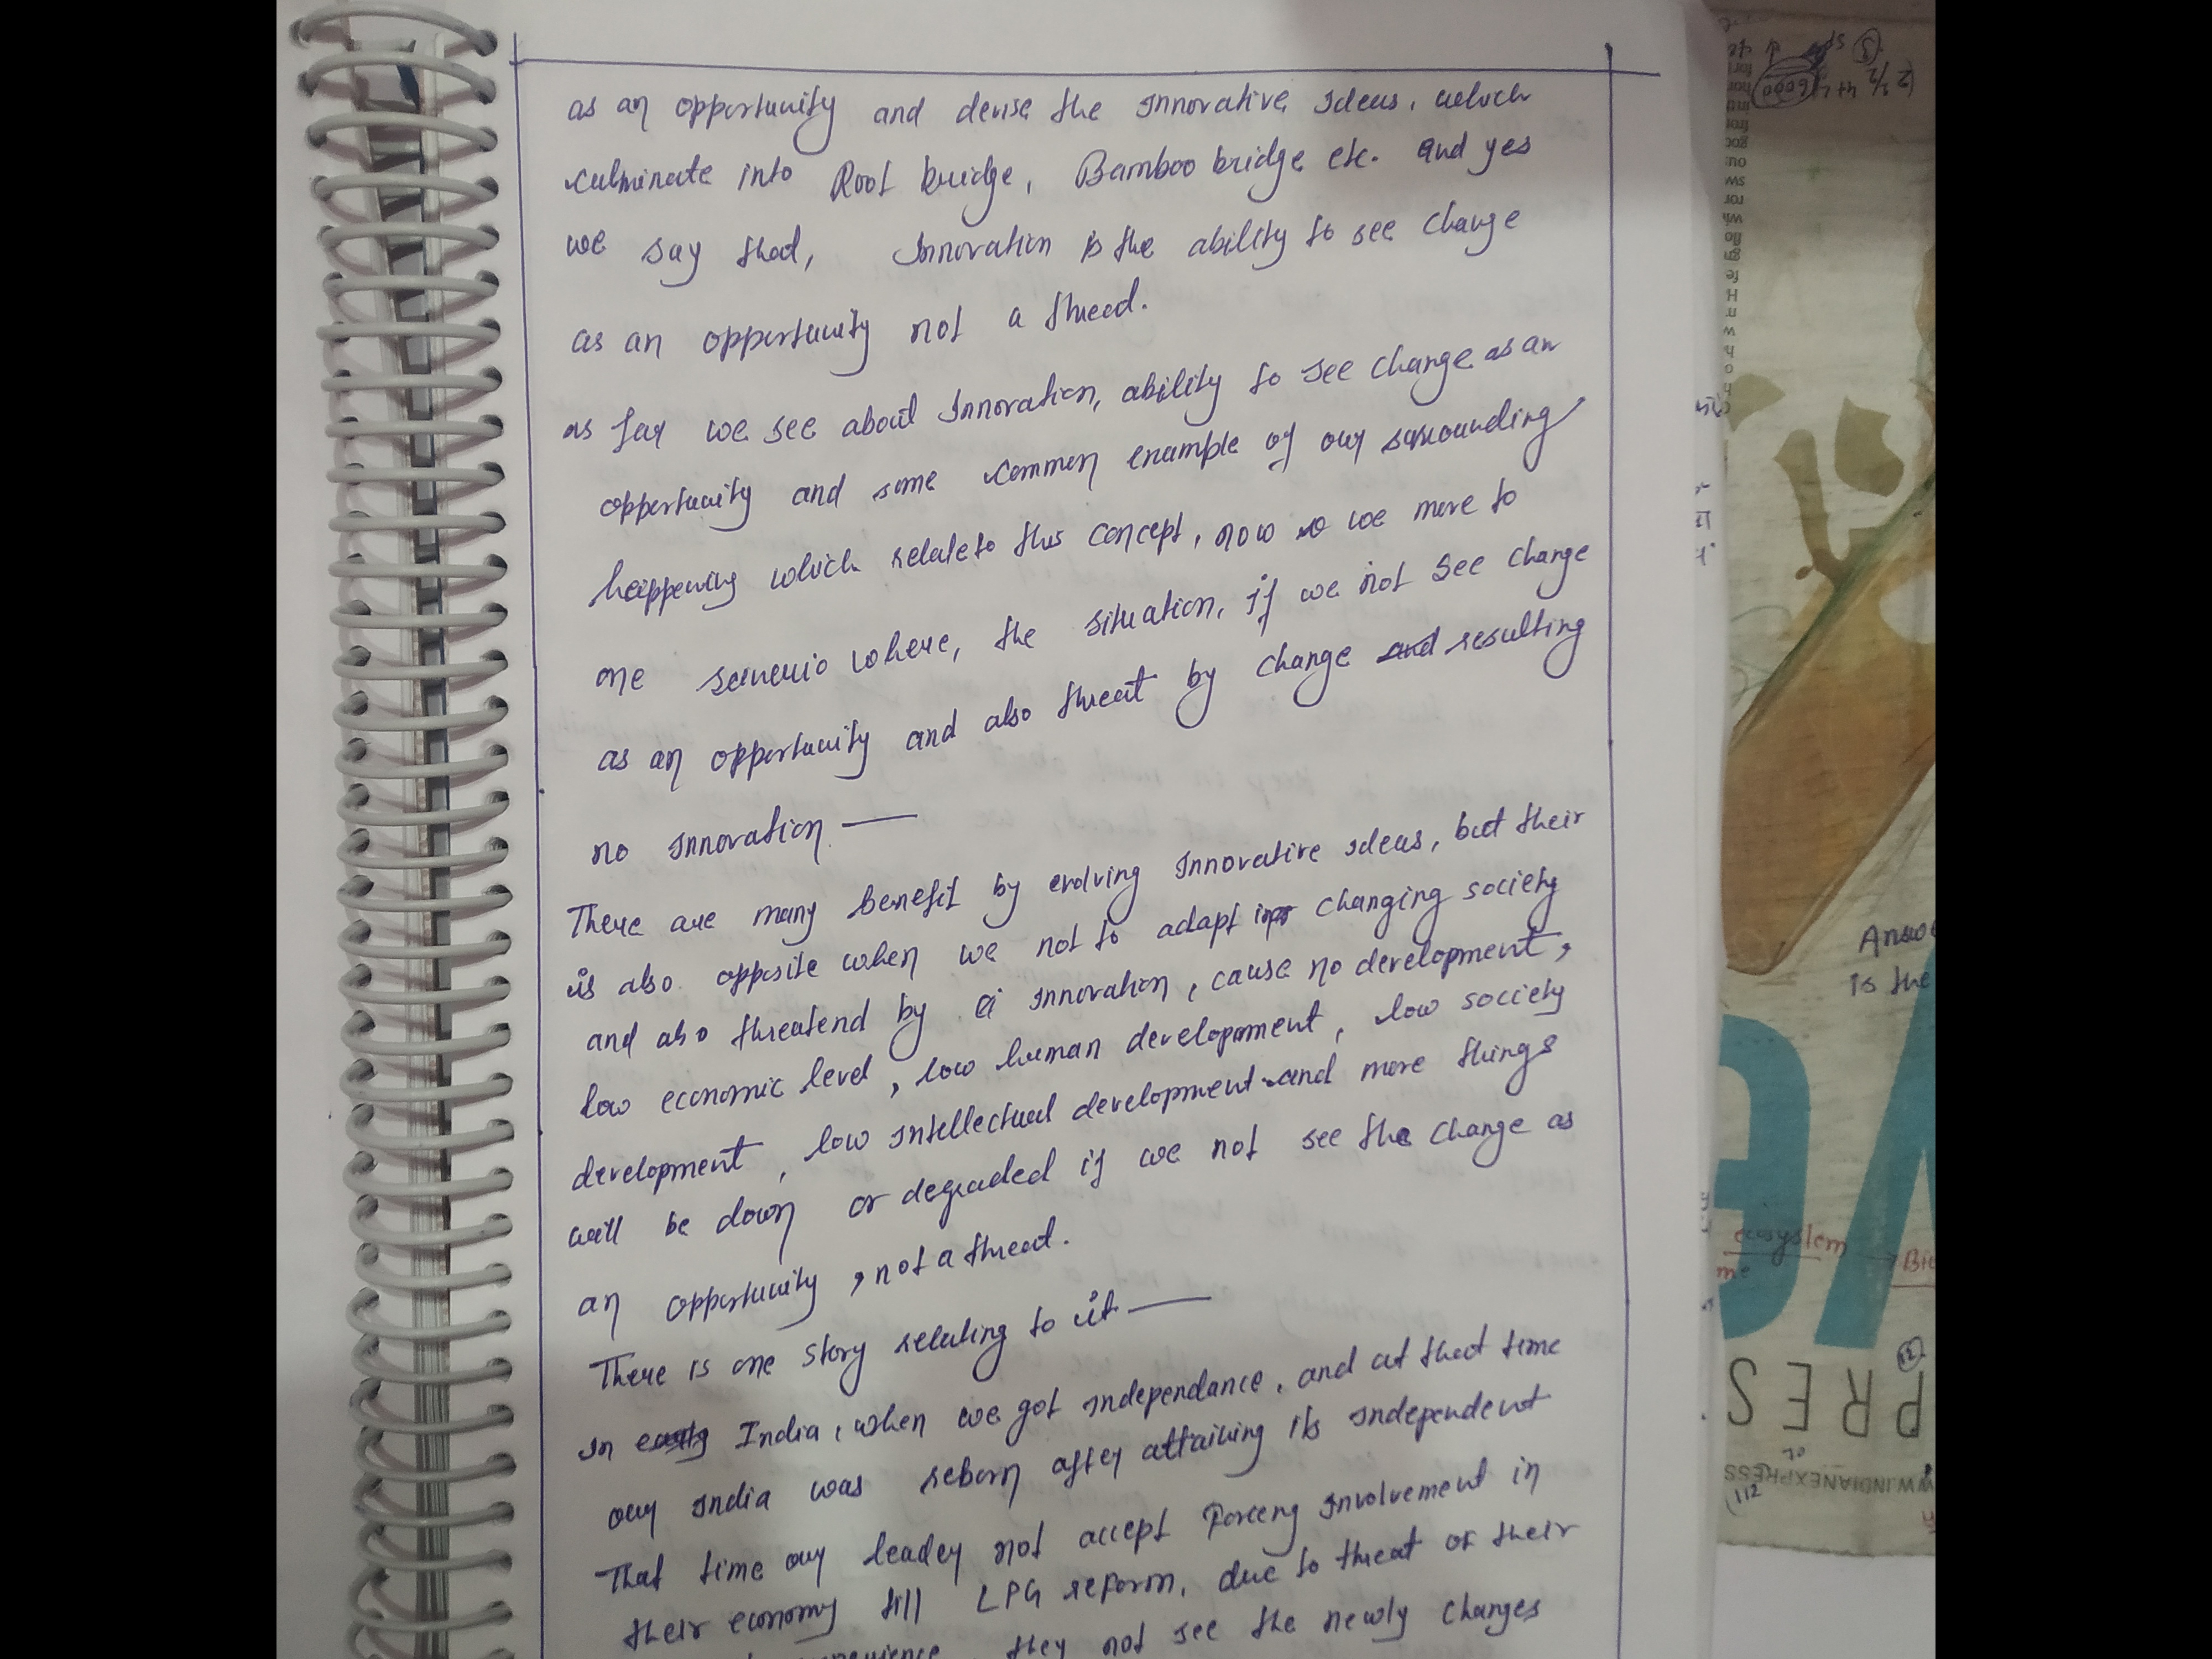 as an opportunity and devise the Innovative Ideas, which
culminate into Root bridge, Bamboo bridge etc. and yes
we say that, Innovation is the ability to see change
as an opportunity not a thread.
as far we see about Innovation, ability to see change as an
opportunity and some common example of our surrounding
happening which relate to this concept, now we move to
one scenerio where, the situation, if we not see change
as an opportunity and also threat by change and resulting
no Innovation —
There are many benefit by evolving Innovative ideas, but their
is also opposite when we not to adapt changing society
and also threatend by Innovation, cause no development,
low economic level, low human development, low society
development, low intellectual development and more things
will be down or degraded if we not see the change as
an opportunity, not a thread.
There is one story relating to it —
In India, when we got independance, and at that time
our India was reborn after attaining its independent
That time our leader not accept Foreng involvement in
their economy till LPG reform, due to threat of their
they not see the newly changes
Answ
is the
ecosystem → Bio
me
PRES
WW.INDIANEXPRESS
112
12
6000